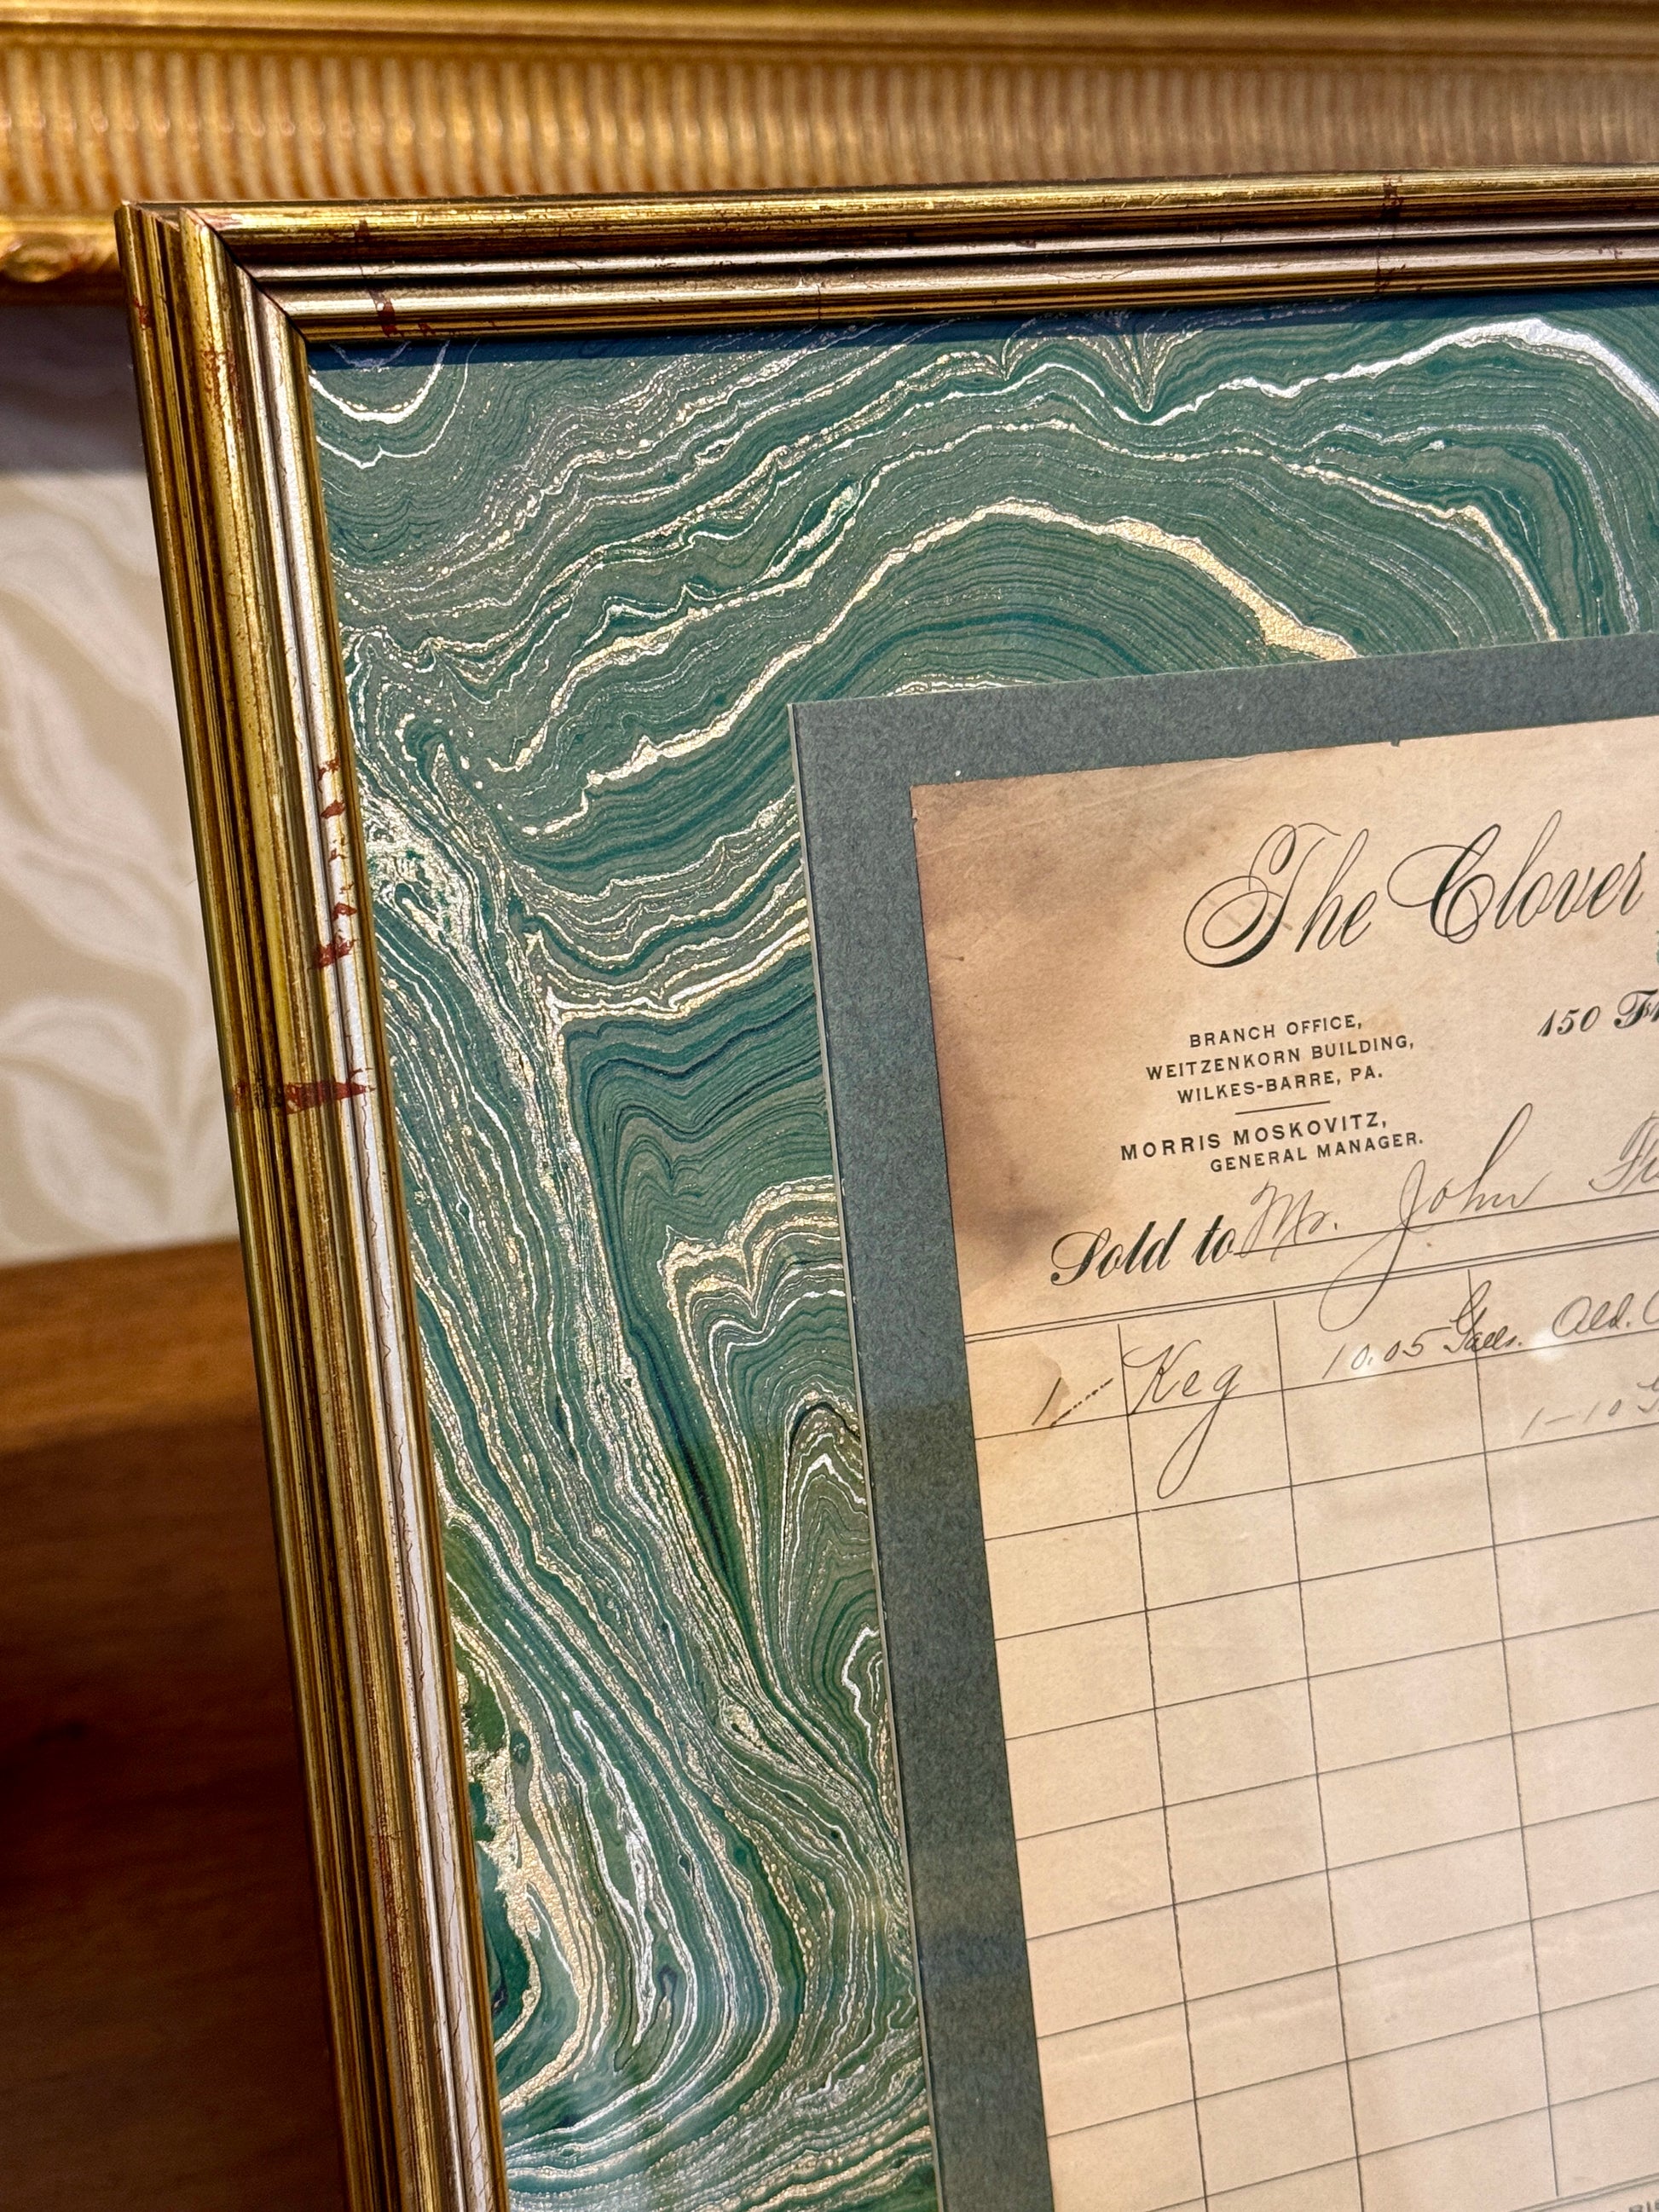 The Clover
150
BRANCH OFFICE,
WEITZENKORN BUILDING,
WILKES-BARRE, PA.
MORRIS MOSKOVITZ,
GENERAL MANAGER.
Sold to Mr. John
1 Keg 10.05 Galls. Old.
1-10